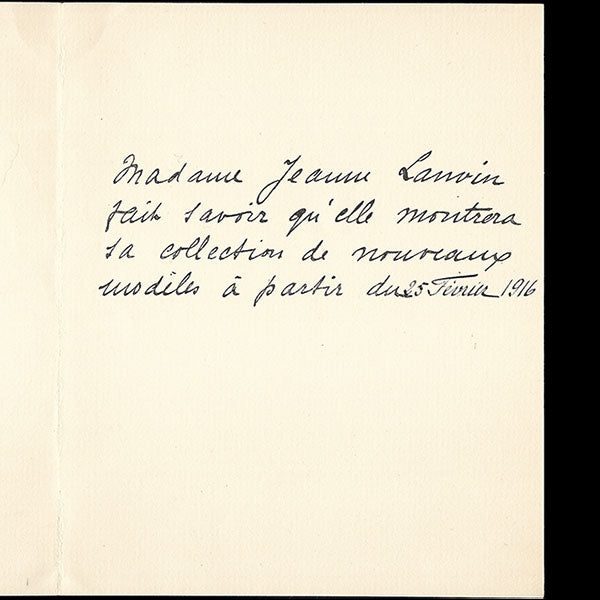 Madame Jeanne Lanvin
fait savoir qu'elle montrera
sa collection de nouveaux
modèles à partir du 25 Février 1916